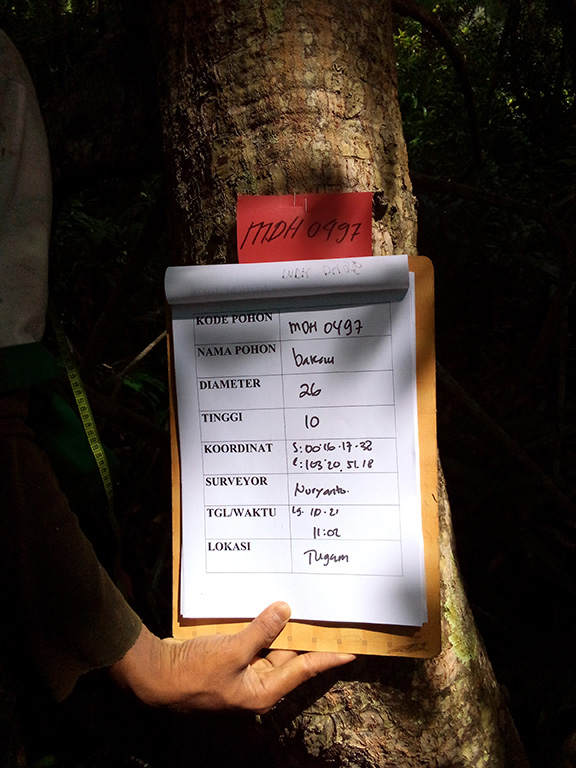 MDH 0497
KODE POHON MDH 0497
NAMA POHON bakau
DIAMETER 26
TINGGI 10
KOORDINAT S: 00°16.17.32
E: 103°20.51.18
SURVEYOR Nuryanto.
TGL/WAKTU 10.21
11:02
LOKASI Tugam